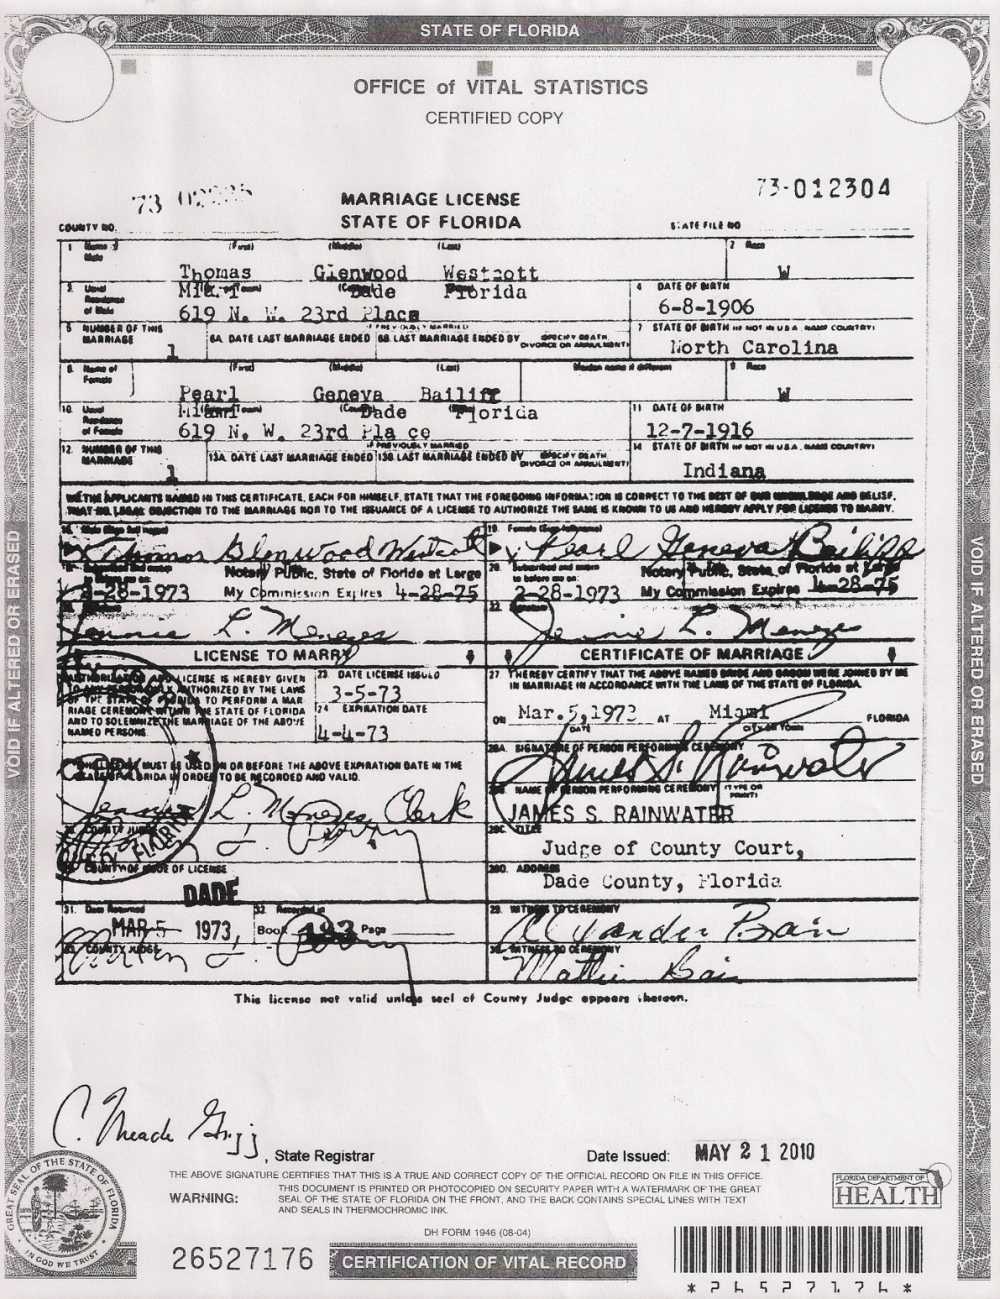 STATE OF FLORIDA
OFFICE of VITAL STATISTICS
CERTIFIED COPY
VOID IF ALTERED OR ERASED
VOID IF ALTERED OR ERASED
73
MARRIAGE LICENSE
STATE OF FLORIDA
73-012304
COUNTY NO.
STATE FILE NO
1 Name of Male (First) (Middle) (Last) 2 Race
Thomas Glenwood Westcott W
3. Usual Residence of Male
Miami Dade Florida
619 N. W. 23rd Place
4 DATE OF BIRTH
6-8-1906
5 NUMBER OF THIS MARRIAGE
1
IF PREVIOUSLY MARRIED
6A DATE LAST MARRIAGE ENDED 6B LAST MARRIAGE ENDED BY SPECIFY DEATH, DIVORCE OR ANNULMENT)
7 STATE OF BIRTH (IF NOT IN U.S.A. NAME COUNTRY)
North Carolina
8. Name of Female (First) (Middle) (Last) Maiden name if different 9 Race
Pearl Geneva Bailiff W
10. Usual Residence of Female
Miami Dade Florida
619 N. W. 23rd Pla ce
11 DATE OF BIRTH
12-7-1916
12. NUMBER OF THIS MARRIAGE
1
IF PREVIOUSLY MARRIED
13A DATE LAST MARRIAGE ENDED 13B LAST MARRIAGE ENDED BY SPECIFY DEATH, DIVORCE OR ANNULMENT)
14 STATE OF BIRTH (IF NOT IN U.S.A. NAME COUNTRY)
Indiana
WE THE APPLICANTS NAMED IN THIS CERTIFICATE, EACH FOR HIMSELF, STATE THAT THE FOREGOING INFORMATION IS CORRECT TO THE BEST OF OUR KNOWLEDGE AND BELIEF,
THAT NO LEGAL OBJECTION TO THE MARRIAGE NOR TO THE ISSUANCE OF A LICENSE TO AUTHORIZE THE SAME IS KNOWN TO US AND HEREBY APPLY FOR LICENSE TO MARRY.
Thomas Glenwood Westcott
19. Female (Sign full name)
Pearl Geneva Bailiff
Subscribed and sworn to before me on:
Notary Public, State of Florida at Large
2-28-1973 My Commission Expires 4-28-75
20. Subscribed and sworn to before me on:
Notary Public, State of Florida at Large
2-28-1973 My Commission Expires 4-28-75
Jennie L. Menezes
22. Signature
Jennie L. Menezes
LICENSE TO MARRY
CERTIFICATE OF MARRIAGE
AUTHORIZATION AND LICENSE IS HEREBY GIVEN
TO ANY PERSON DULY AUTHORIZED BY THE LAWS
OF THE STATE OF FLORIDA TO PERFORM A MAR
RIAGE CEREMONY WITHIN THE STATE OF FLORIDA
AND TO SOLEMNIZE THE MARRIAGE OF THE ABOVE
NAMED PERSONS.
23 DATE LICENSE ISSUED
3-5-73
24 EXPIRATION DATE
4-4-73
27. I HEREBY CERTIFY THAT THE ABOVE NAMED BRIDE AND GROOM WERE JOINED BY ME
IN MARRIAGE IN ACCORDANCE WITH THE LAWS OF THE STATE OF FLORIDA.
ON Mar.5,1973 AT Miami FLORIDA
DATE CITY OR TOWN
MUST BE USED ON OR BEFORE THE ABOVE EXPIRATION DATE IN THE
STATE OF FLORIDA IN ORDER TO BE RECORDED AND VALID.
28A. SIGNATURE OF PERSON PERFORMING CEREMONY
James S. Rainwater
Jennie L. Menezes Clerk
NAME OF PERSON PERFORMING CEREMONY (TYPE OR PRINT)
JAMES S. RAINWATER
COUNTY JUDGE
28C. TITLE
Judge of County Court,
COUNTY OF ISSUE OF LICENSE
DADE
28D. ADDRESS
Dade County, Florida
31. Date Returned
MAR 5 1973,
32. Recorded in
Book 193 Page
29. WITNESS TO CEREMONY
Alexander Bain
COUNTY JUDGE
30. WITNESS TO CEREMONY
Bain
This license not valid unless seal of County Judge appears thereon.
C. Meade Grigg
, State Registrar
Date Issued: MAY 21 2010
THE ABOVE SIGNATURE CERTIFIES THAT THIS IS A TRUE AND CORRECT COPY OF THE OFFICIAL RECORD ON FILE IN THIS OFFICE.
WARNING: THIS DOCUMENT IS PRINTED OR PHOTOCOPIED ON SECURITY PAPER WITH A WATERMARK OF THE GREAT
SEAL OF THE STATE OF FLORIDA ON THE FRONT, AND THE BACK CONTAINS SPECIAL LINES WITH TEXT
AND SEALS IN THERMOCHROMIC INK.
GREAT SEAL OF THE STATE OF FLORIDA
IN GOD WE TRUST
FLORIDA DEPARTMENT OF
HEALTH
DH FORM 1946 (08-04)
26527176
CERTIFICATION OF VITAL RECORD
*26527176*